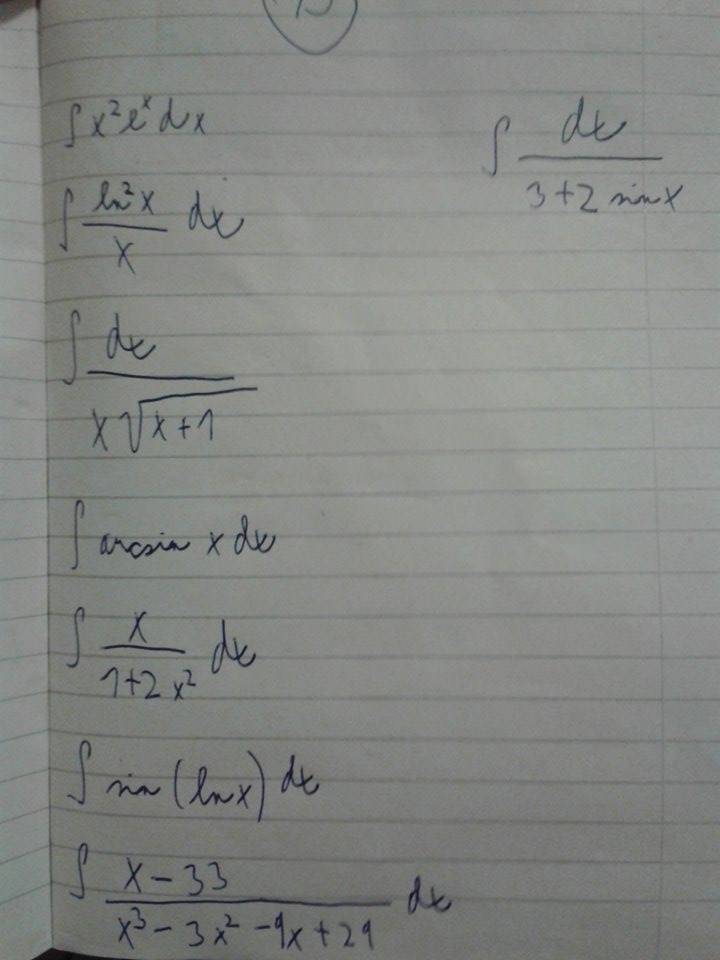 ∫ x² eˣ dx
∫ dx / (3+2 sin x)
∫ ln² x / x dx
∫ dx / (x √(x+1))
∫ arcsin x dx
∫ x / (1+2x²) dx
∫ sin (ln x) dx
∫ (x-33) / (x³ - 3x² - 9x + 27) dx